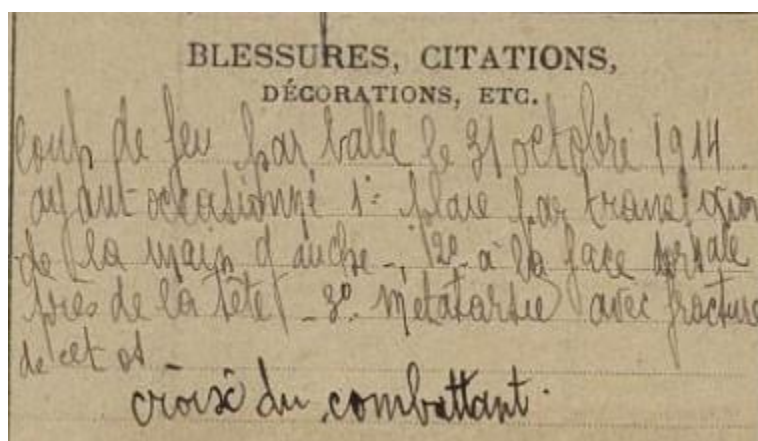 BLESSURES, CITATIONS,
DÉCORATIONS, ETC.
Coup de feu par balle le 31 octobre 1914
ayant occasionné 1º plaie par
de la main gauche -, 2º à la face dorsale
près de la tête - 3º. métatarsie avec fracture
de cet os
croix du combattant.